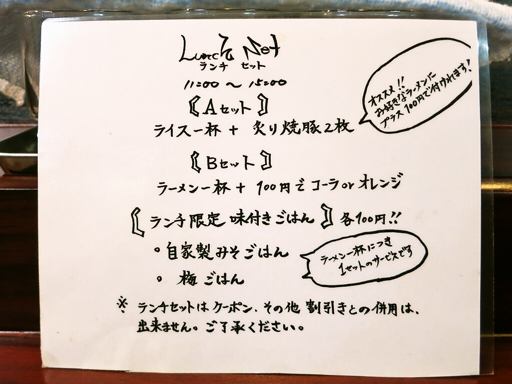 Lunch Set
ランチ セット
11:00 〜 15:00
【Aセット】
ライス一杯 + 炙り焼豚2枚
オススメ!!
お好きなラーメンに
プラス100円で付けれます!
【Bセット】
ラーメン一杯 + 100円で コーラ or オレンジ
【ランチ限定 味付きごはん】 各100円!!
・自家製みそごはん
・梅ごはん
ラーメン一杯につき
1セットのサービスです
※ ランチセットは クーポン、その他 割引きとの併用は、
出来ません。ご了承ください。